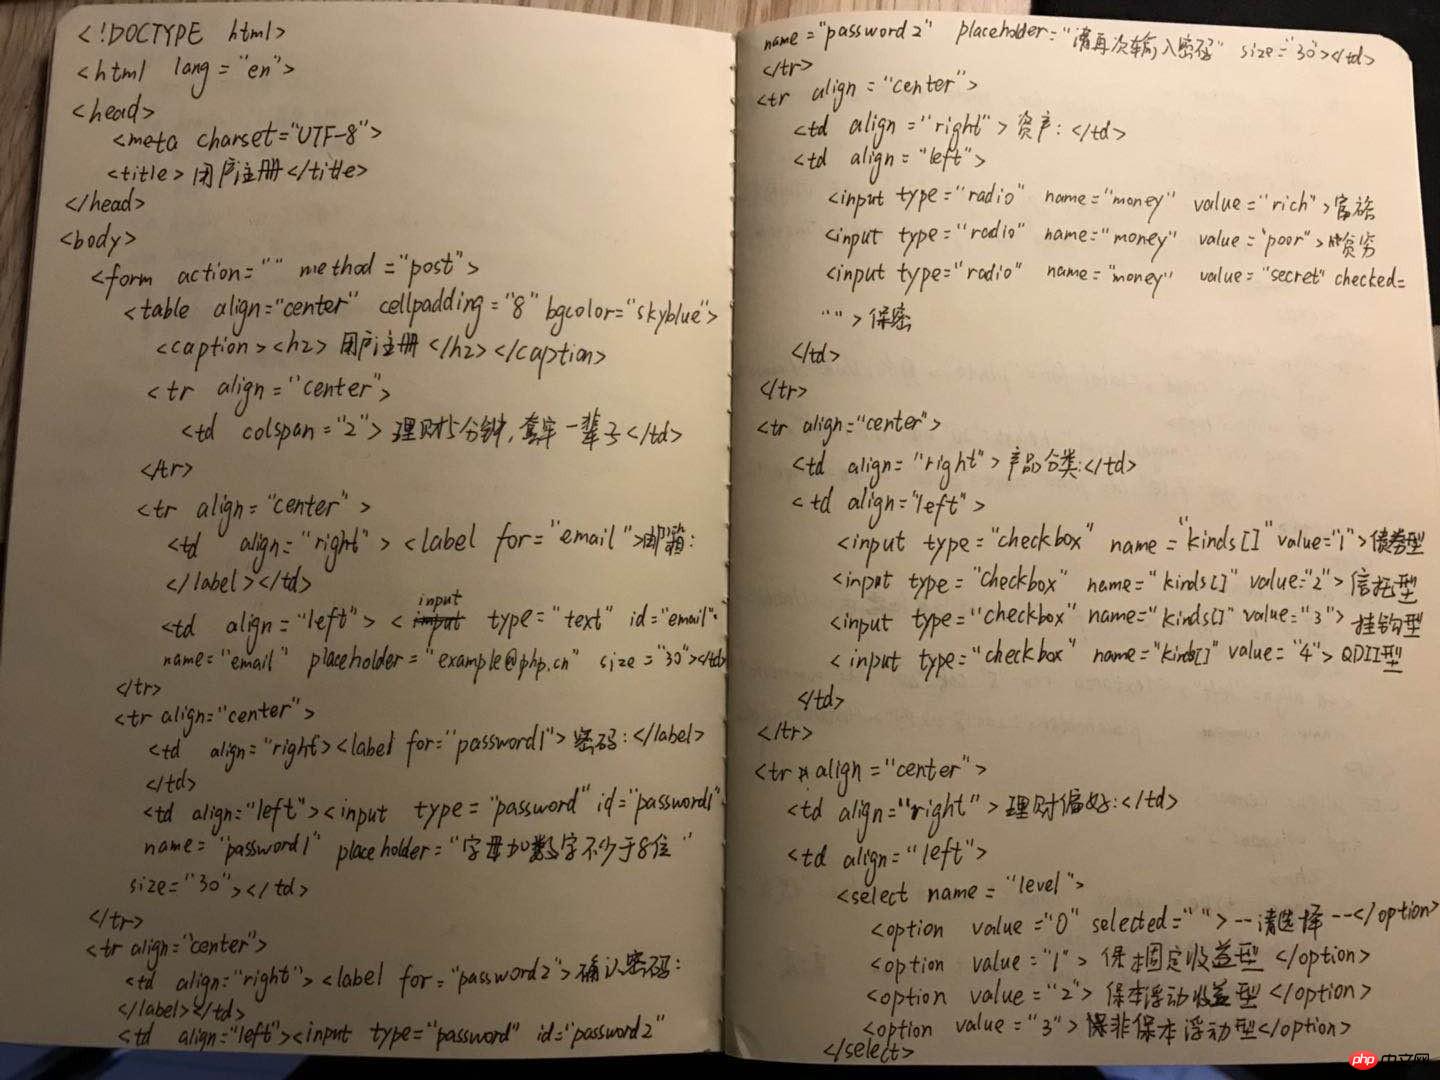 <!DOCTYPE html>
<html lang="en">
<head>
<meta charset="UTF-8">
<title>用户注册</title>
</head>
<body>
<form action="" method="post">
<table align="center" cellpadding="8" bgcolor="skyblue">
<caption><h2>用户注册</h2></caption>
<tr align="center">
<td colspan="2">理财5分钟,套牢一辈子</td>
</tr>
<tr align="center">
<td align="right"><label for="email">邮箱:
</label></td>
<td align="left"><input type="text" id="email"
name="email" placeholder="example@php.cn" size="30"></td>
</tr>
<tr align="center">
<td align="right><label for="password1">密码:</label>
</td>
<td align="left"><input type="password" id="password1"
name="password1" placeholder="字母加数字不少于8位"
size="30"></td>
</tr>
<tr align="center">
<td align="right"><label for="password2">确认密码:
</label></td>
<td align="left"><input type="password" id="password2
name="password2" placeholder="请再次输入密码" size="30"></td>
</tr>
<tr align="center">
<td align="right">资产:</td>
<td align="left">
<input type="radio" name="money" value="rich">富裕
<input type="radio" name="money" value="poor">贫穷
<input type="radio" name="money" value="secret" checked=
"">保密
</td>
</tr>
<tr align="center">
<td align="right">产品分类:</td>
<td align="left">
<input type="checkbox" name="kinds[]" value="1">债券型
<input type="checkbox" name="kinds[]" value="2">信托型
<input type="checkbox" name="kinds[]" value="3">挂钩型
<input type="checkbox" name="kinds[]" value="4">QDII型
</td>
</tr>
<tr align="center">
<td align="right">理财偏好:</td>
<td align="left">
<select name="level">
<option value="0" selected="">--请选择--</option>
<option value="1">保本固定收益型</option>
<option value="2">保本浮动收益型</option>
<option value="3">保非保本浮动型</option>
</select>
php中文网